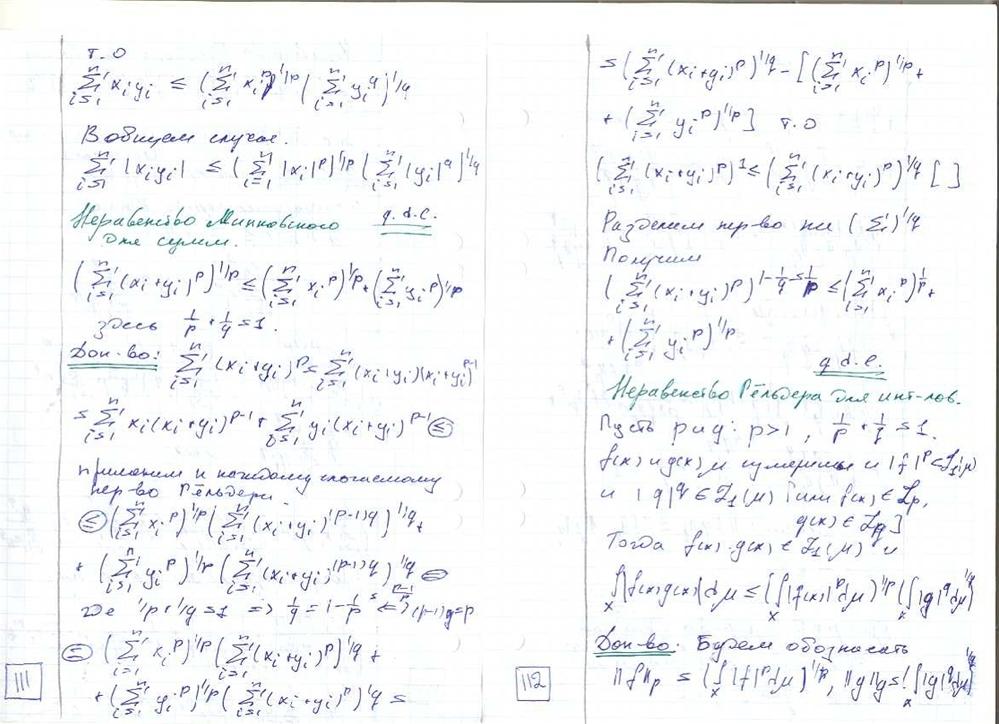 т.о
∑ᵢ₌₁ⁿ xᵢyᵢ ≤ (∑ᵢ₌₁ⁿ xᵢᵖ)^1/p (∑ᵢ₌₁ⁿ yᵢ^q)^1/q
В общем случае.
∑ᵢ₌₁ⁿ |xᵢyᵢ| ≤ (∑ᵢ₌₁ⁿ |xᵢ|ᵖ)^1/p (∑ᵢ₌₁ⁿ |yᵢ|^q)^1/q
Неравенство Минковского q.d.e.
для сумм.
(∑ᵢ₌₁ⁿ (xᵢ+yᵢ)ᵖ)^1/p ≤ (∑ᵢ₌₁ⁿ xᵢᵖ)^1/p + (∑ᵢ₌₁ⁿ yᵢᵖ)^1/p
здесь 1/p + 1/q = 1.
Док-во: ∑ᵢ₌₁ⁿ (xᵢ+yᵢ)ᵖ = ∑ᵢ₌₁ⁿ (xᵢ+yᵢ)(xᵢ+yᵢ)^p-1
= ∑ᵢ₌₁ⁿ xᵢ(xᵢ+yᵢ)^p-1 + ∑ᵢ₌₁ⁿ yᵢ(xᵢ+yᵢ)^p-1 ≤
применим к каждому слагаемому
нер-во Гёльдера
≤ (∑ᵢ₌₁ⁿ xᵢᵖ)^1/p (∑ᵢ₌₁ⁿ (xᵢ+yᵢ)^(p-1)q)^1/q +
+ (∑ᵢ₌₁ⁿ yᵢᵖ)^1/p (∑ᵢ₌₁ⁿ (xᵢ+yᵢ)^(p-1)q)^1/q =
где 1/p + 1/q = 1 => 1/q = 1 - 1/p (p-1)q=p
= (∑ᵢ₌₁ⁿ xᵢᵖ)^1/p (∑ᵢ₌₁ⁿ (xᵢ+yᵢ)ᵖ)^1/q +
+ (∑ᵢ₌₁ⁿ yᵢᵖ)^1/p (∑ᵢ₌₁ⁿ (xᵢ+yᵢ)ᵖ)^1/q =
111
= (∑ᵢ₌₁ⁿ (xᵢ+yᵢ)ᵖ)^1/q - [(∑ᵢ₌₁ⁿ xᵢᵖ)^1/p +
+ (∑ᵢ₌₁ⁿ yᵢᵖ)^1/p] т.о
(∑ᵢ₌₁ⁿ (xᵢ+yᵢ)ᵖ)^1 ≤ (∑ᵢ₌₁ⁿ (xᵢ+yᵢ)ᵖ)^1/q [ ]
Разделим нер-во на (∑)^1/q
Получим
(∑ᵢ₌₁ⁿ (xᵢ+yᵢ)ᵖ)^1-1/q=1/p ≤ (∑ᵢ₌₁ⁿ xᵢᵖ)^1/p +
+ (∑ᵢ₌₁ⁿ yᵢᵖ)^1/p
q.d.e.
Неравенство Гёльдера для инт-лов.
Пусть p и q: p>1, 1/p + 1/q = 1.
f(x) и g(x) измеримы и |f|ᵖ ∈ L₁(μ)
и |g|^q ∈ L₁(μ) [или f(x) ∈ Lp,
g(x) ∈ Lq]
Тогда f(x)·g(x) ∈ L₁(μ) и
∫ₓ|f(x)g(x)|dμ ≤ (∫ₓ|f(x)|ᵖdμ)^1/p (∫ₓ|g|^q dμ)^1/q
Док-во: Будем обозначать
‖f‖p = (∫ₓ|f|ᵖdμ)^1/p, ‖g‖q = (∫ₓ|g|^q dμ)^1/q
112